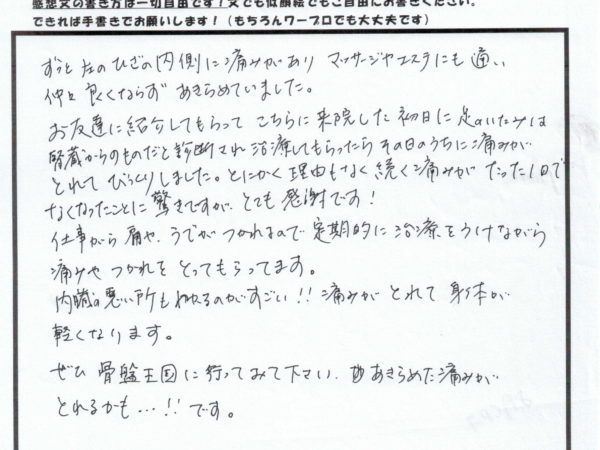 感想文の書き方は一切自由です！文でも似顔絵でもご自由にお書きください。
できれば手書きでお願いします！（もちろんワープロでも大丈夫です）
ずっと左のひざの内側に痛みがあり マッサージやエステにも通い
仲々良くならず あきらめていました。
お友達に紹介してもらって こちらに来院した初日に足のいたみは
腎蔵からのものだと診断され治療してもらったら その日のうちに痛みが
とれて びっくりしました。とにかく理由もなく続く痛みが たった1日で
なくなったことに驚きですが、とても感謝です！
仕事がら 肩や、うでが つかれるので 定期的に治療をうけながら
痛みや つかれを とってもらってます。
内臓の悪い所も わかるのがすごい!! 痛みが とれて 身体が
軽くなります。
ぜひ 骨盤王国に行ってみて下さい、 あきらめた痛みが
とれるかも…!! です。